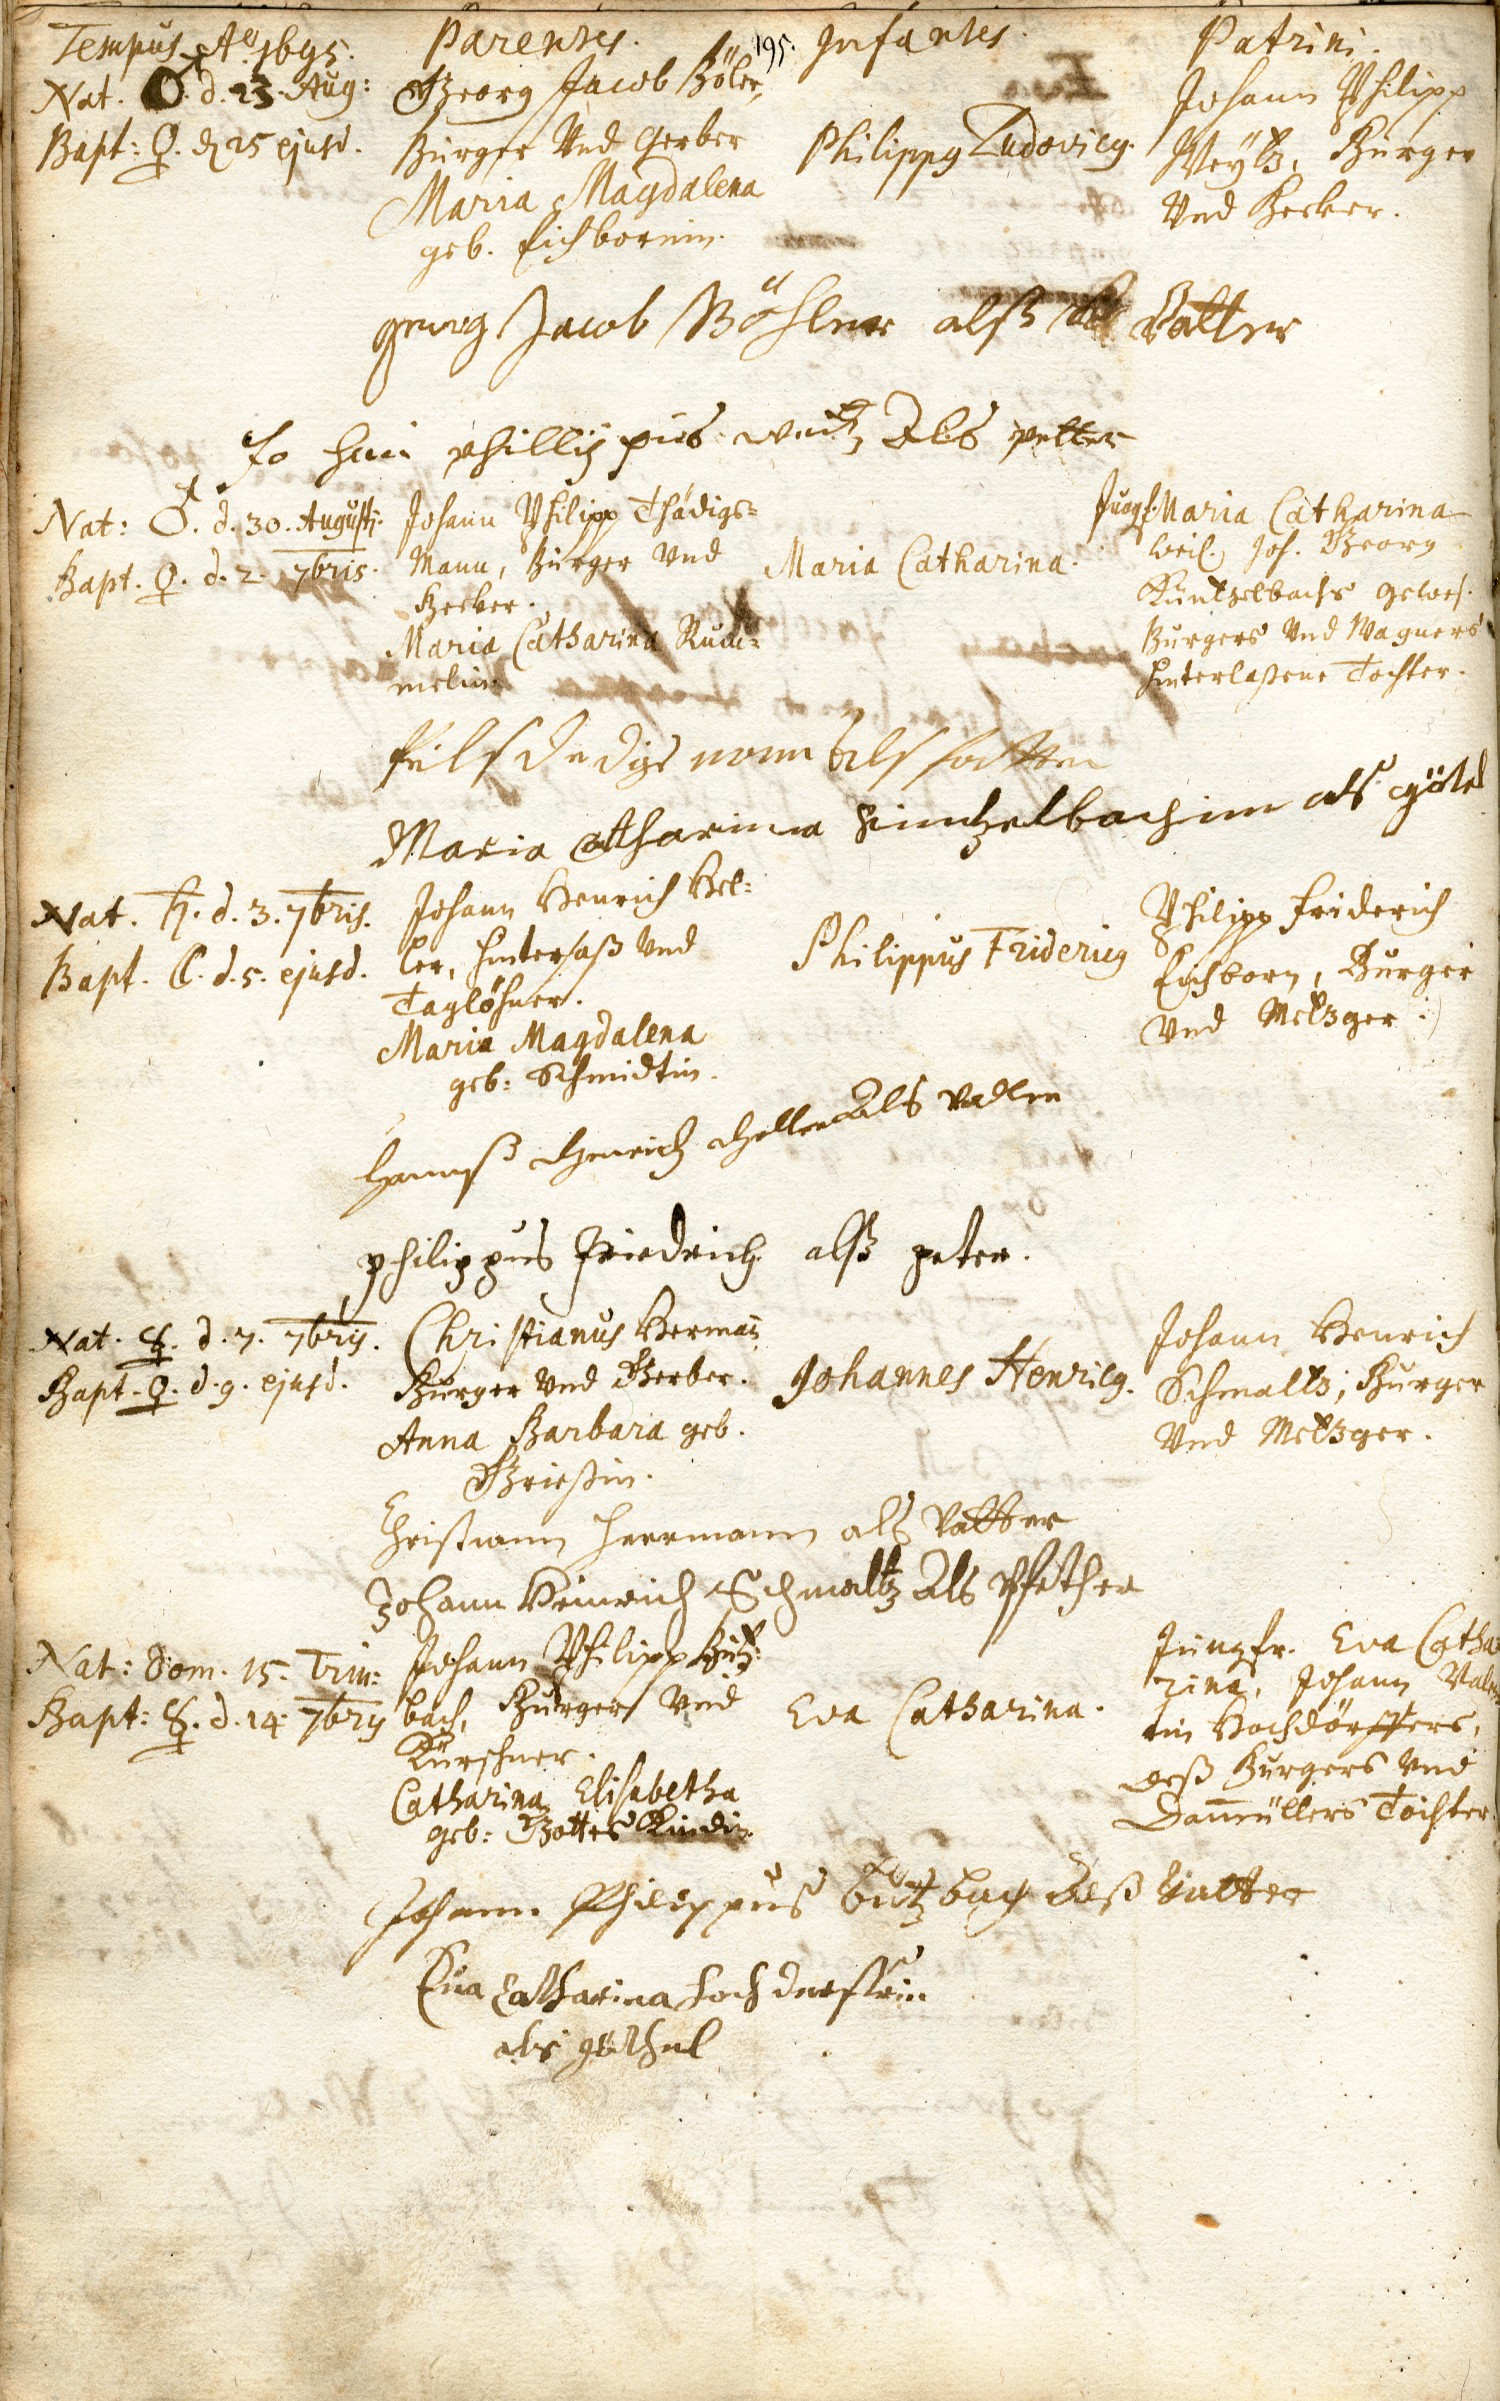 Tempus Aō 1695. Parentes. 195. Infantes. Patrini.
Nat. ♂. d. 23. Aug:
Bapt: ♀. d 25 ejusd.
Georg Jacob Böler,
Burger Und Gerber
Maria Magdalena
geb. Eichbornin.
Philippg Ludovicg.
Johann Philipp
Weÿtz, Burger
Und Becker.
georg Jacob Böhler alß Vatter
Jo han phillippus weitz Als petter
Nat: ♂. d. 30. Augusti.
Bapt. ♀. d. 2. 7bris.
Johann Philipp Thädigs=
Mann, Burger Und
Becker.
Maria Catharina Rum=
melin.
Maria Catharina.
Jungf. Maria Catharina
weil. Joh. Georg
Küntzelbachs gewes.
Burgers Und Wagners
hinterlaßene Tochter.
Maria Catharina Kintzelbachin als götel
Nat. ♄. d. 3. 7bris.
Bapt. ☾. d. 5. ejusd.
Johann Henrich Hel=
ler, Hintersaß Und
Taglöhner.
Maria Magdalena
geb: Schmidtin.
Philippus Fridericg
Philipp Friderich
Eichborn, Burger
Und Metzger.
Hannß Henrich Heller Als Vatter
philippus Friedrich alß peter.
Nat. ☿. d. 7. 7bris.
Bapt. ♀. d. 9. ejusd.
Christianus Hermañ
Burger Und Gerber.
Anna Barbara geb.
Grießin.
Johannes Henricg.
Johann Henrich
Schmaltz, Burger
Und Metzger.
Christiann Herrmann als Vatter
Johann Heinrich Schmaltz Als Pfether
Nat: Dom. 15. Trin:
Bapt: ☿. d. 14. 7bris
Johann Philipp Butz=
bach, Burger Und
Kürschner.
Catharina Elisabetha
geb: Gottes Kindin.
Eva Catharina.
Jungfr. Eva Catha
rina, Johann Valen
tin Hochdörffers,
deß Burgers Und
Dam̃üllers Tochter.
Johann Philippus butzbach Alß Vatter
Eua Catharina hochderffrin
als göthel